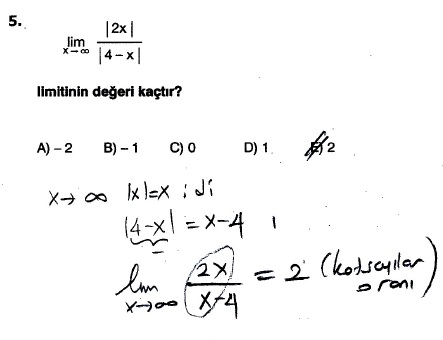 5.
lim x→∞ |2x| / |4 – x|
limitinin değeri kaçtır?
A) – 2 B) – 1 C) 0 D) 1 E) 2
x→∞ |x|=x idi
|4-x| = x-4
lim x→∞ 2x / x-4 = 2 (katsayılar oranı)